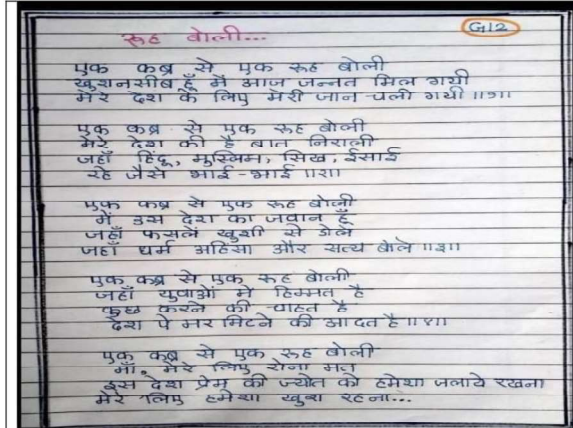 G12
रूह बोली...
एक कब्र से एक रूह बोली
खुशनसीब हूँ मै आज जन्नत मिल गयी
मेरे देश के लिए मेरी जान चली गयी ॥१॥
एक कब्र से एक रूह बोली
मेरे देश की है बात निराली
जहाँ हिंदू, मुस्लिम, सिख, ईसाई
रहे जैसे भाई-भाई ॥२॥
एक कब्र से एक रूह बोली
में उस देश का जवान हूँ
जहाँ फसलें खुशी से डोले
जहाँ धर्म अहिंसा और सत्य बोले ॥३॥
एक कब्र से एक रूह बोली
जहाँ युवाओं मे हिम्मत है
कुछ करने की चाहत है
देश पे मर मिटने की आदत है ॥४॥
एक कब्र से एक रूह बोली
माँ, मेरे लिए रोना मत
इस देश प्रेम की ज्योत को हमेशा जलाये रखना
मेरे लिए हमेशा खुश रहना...